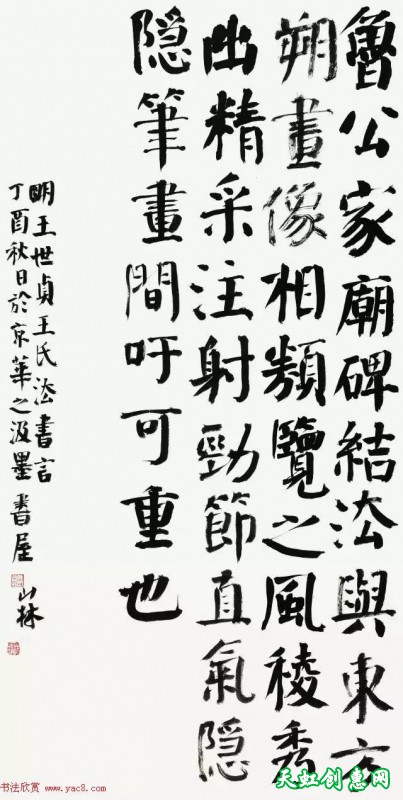 魯公家廟碑結法與東方
朔畫像相類覽之風稜秀
出精采注射勁節直氣隱
隐筆畫間吁可重也
明王世貞王氏法書言
丁酉秋日於京華之汲墨書屋 山林
书法欣赏 www.yac8.com
天虹创惠网